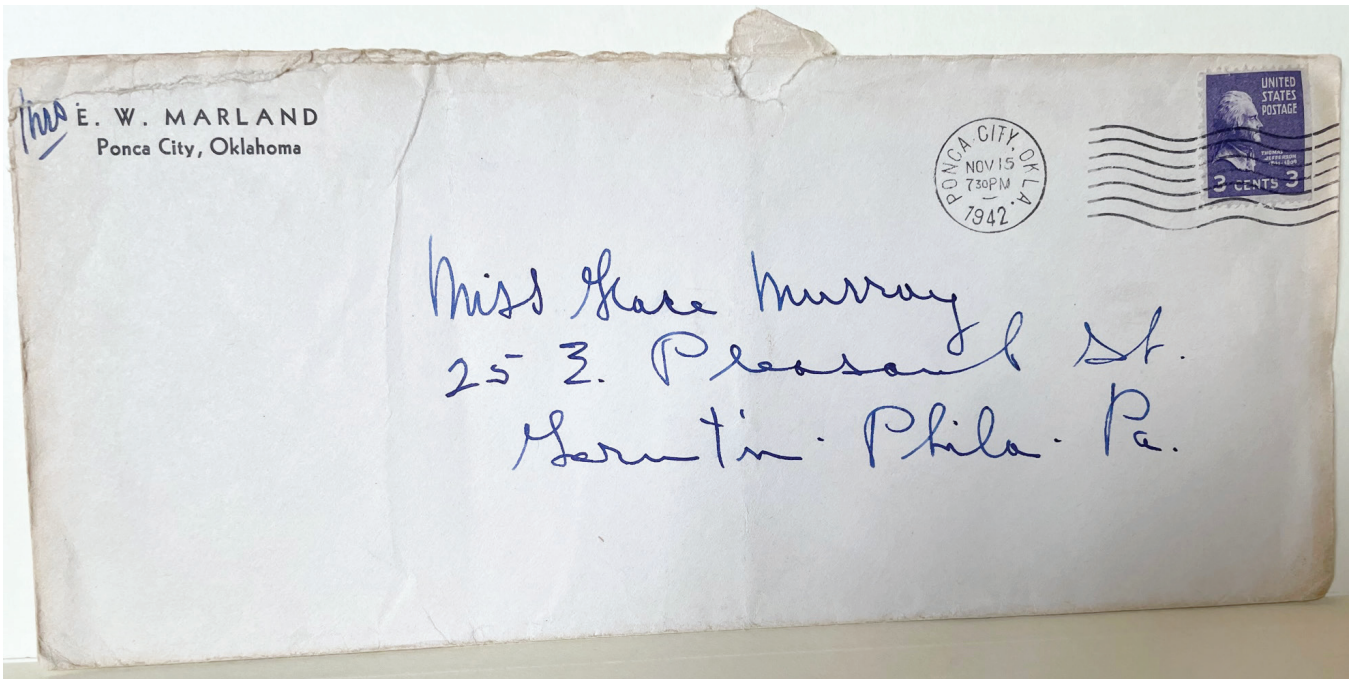 Mrs E. W. MARLAND
Ponca City, Oklahoma
PONCA CITY, OKLA.
NOV 15
7 30 PM
1942
UNITED
STATES
POSTAGE
THOMAS
JEFFERSON
3 CENTS 3
Miss Grace Murray
25 E. Pleasant St.
Germt'n. Phila. Pa.